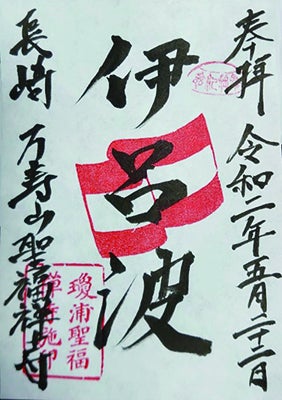 奉拝 令和二年五月二十二日
伊呂波
長崎 万寿山聖福禅寺
瓊浦聖福
禪寺施印